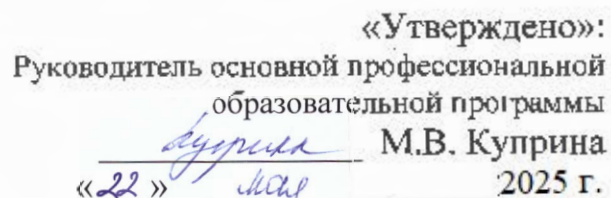 «Утверждено»:
Руководитель основной профессиональной
образовательной программы
Куприна М.В. Куприна
«22» мая 2025 г.